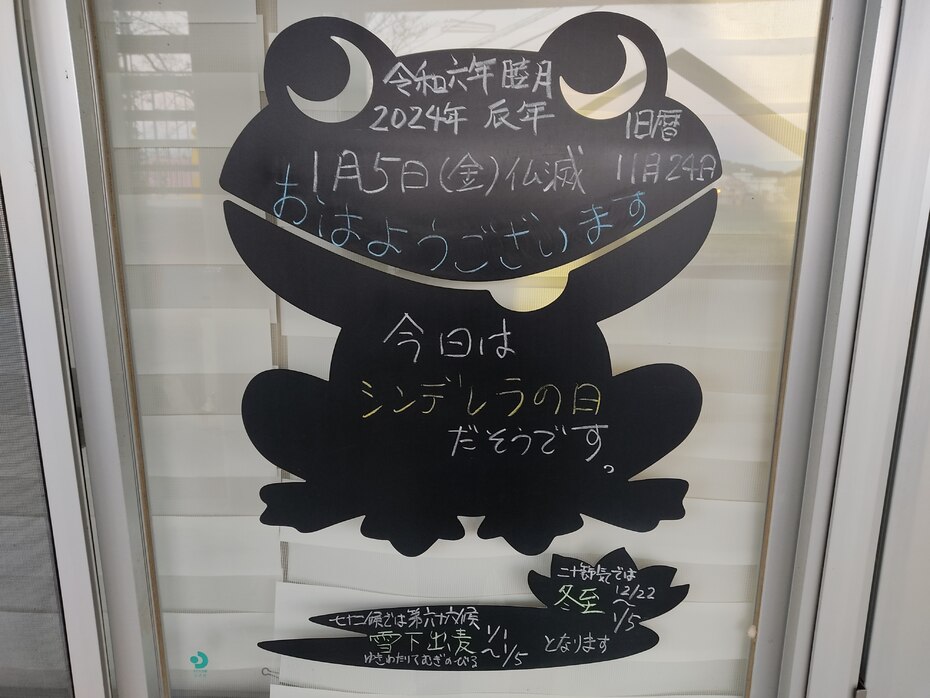 令和六年 睦月
2024年 辰年
旧暦
11月24日
1月5日(金)仏滅
おはようございます
今日は
シンデレラの日
だそうです。
二十四節気では
冬至 12/22〜1/5
となります
七十二候では第六十六候
雪下出麦 1/1〜1/5
ゆきわたりてむぎのびる